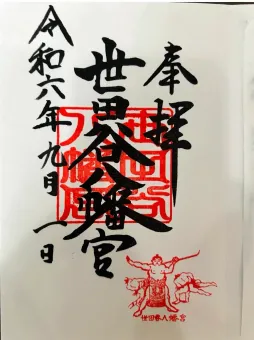 奉拝
世田谷八幡宮
令和六年九月一日
世田谷八幡宮
世田谷八幡宮